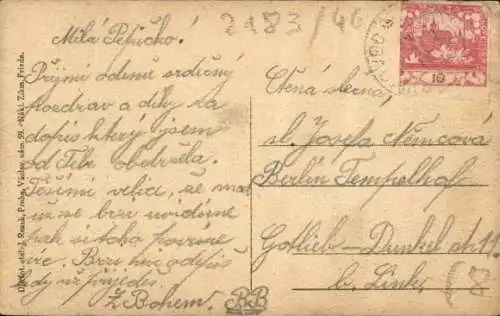 2183/46
Milá Pepičko!
Přijmi ode mě srdečný
pozdrav a díky za
dopis který jsem
od Tebe obdržela.
Těšíme velice, že
už se brzo uvidíme
pak si toho povíme
více. Brzo mě odpiš
kdy už přijedeš.
Z Bohem. BB
Ctěná slečna
sl. Josefa Němcová
Berlin Tempelhof
Gottlieb-Dunkel str. 11
b. Link
10